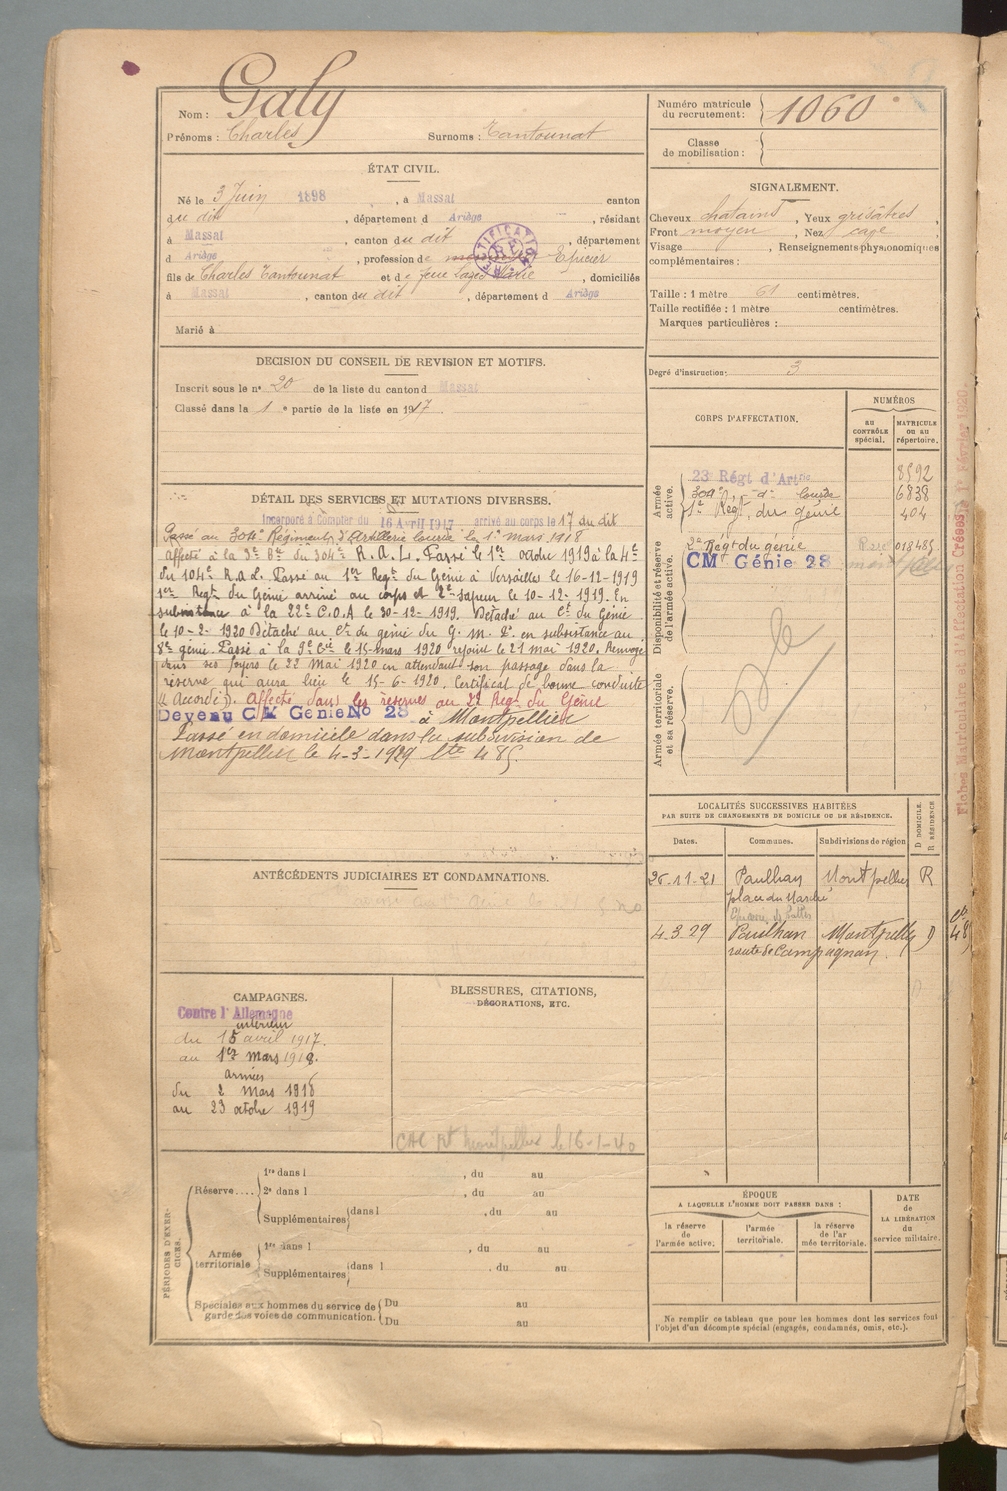 Nom : Galy
Prénoms : Charles Surnoms : Tantounat
Numéro matricule du recrutement : 1060
Classe de mobilisation :
ÉTAT CIVIL.
Né le 3 Juin 1898, à Massat canton
du dit, département d Ariège, résidant
à Massat, canton du dit, département
d Ariège, profession de Epicier
fils de Charles Tantounat et de feue Marie, domiciliés
à Massat, canton du dit, département d Ariège
Marié à
SIGNALEMENT.
Cheveux chatains, Yeux grisâtres,
Front moyen, Nez cave,
Visage , Renseignements physionomiques
complémentaires :
Taille : 1 mètre 61 centimètres.
Taille rectifiée : 1 mètre centimètres.
Marques particulières :
Degré d'instruction : 3
DECISION DU CONSEIL DE REVISION ET MOTIFS.
Inscrit sous le n° 20 de la liste du canton d Massat
Classé dans la 1e partie de la liste en 1917.
DÉTAIL DES SERVICES ET MUTATIONS DIVERSES.
Incorporé à Compter du 16 Avril 1917 arrivé au corps le 17 du dit
Passé au 304e Régiment d'Artillerie Lourde le 1er mars 1918
Affecté à la 3e Be du 304e R.A.L. Passé le 1er octobre 1919 à la 4e
du 104e R.A.L. Passé au 1er Regt du Génie à Versailles le 16-12-1919
1er Regt du Génie arrivé au corps et 2e sapeur le 10-12-1919. En
subsistance à la 22e C.O.A le 20-12-1919. Détaché au Ct du Génie
le 10-2-1920 Détaché au Ct du génie du G.M.P. en subsistance au
8e génie. Passé à la 9e Cie le 15 mars 1920 rejoint le 21 mai 1920. Renvoyé
dans ses foyers le 22 Mai 1920 en attendant son passage dans la
réserve qui aura lieu le 15-6-1920. Certificat de bonne conduite
"Accordé". Affecté dans les réserves au 2e Regt du Génie
Devenu CM Génie No 28 à Montpellier
Passé en domicile dans la subdivision de
Montpellier le 4-3-1929 Lte 485.
CORPS D'AFFECTATION.
NUMÉROS
au CONTRÔLE spécial.
MATRICULE ou au répertoire.
Armée active.
23e Régt d'Artrie 8592
304e d° lourde 6838
1er Regt du génie 404
Disponibilité et réserve de l'armée active.
2e Régt du génie 018485
CM Génie 28
Armée territoriale et sa réserve.
Fiches Matriculaire et d'Affectation Créées le 1er Février 1920.
LOCALITÉS SUCCESSIVES HABITÉES
PAR SUITE DE CHANGEMENTS DE DOMICILE OU DE RÉSIDENCE.
Dates. Communes. Subdivisions de région D DOMICILE. R RÉSIDENCE
26-11-21 Paulhan Montpellier R
place du Marché
4-3-29 Paulhan Montpellier D
route de Campagnan.
ANTÉCÉDENTS JUDICIAIRES ET CONDAMNATIONS.
CAMPAGNES.
Contre l'Allemagne
intérieur
du 15 avril 1917.
au 1er Mars 1918.
armées
du 2 Mars 1918
au 23 octobre 1919
BLESSURES, CITATIONS,
DÉCORATIONS, ETC.
Montpellier le 16-1-40
PÉRIODES D'EXERCICES.
Réserve....
1re dans l , du au
2e dans l , du au
Supplémentaires dans l , du au
Armée territoriale
1re dans l , du au
Supplémentaires dans l , du au
Spéciales aux hommes du service de garde des voies de communication.
Du au
Du au
ÉPOQUE
A LAQUELLE L'HOMME DOIT PASSER DANS :
la réserve de l'armée active.
l'armée territoriale.
la réserve de l'armée territoriale.
DATE de LA LIBÉRATION du service militaire.
Ne remplir ce tableau que pour les hommes dont les services font
l'objet d'un décompte spécial (engagés, condamnés, omis, etc.).